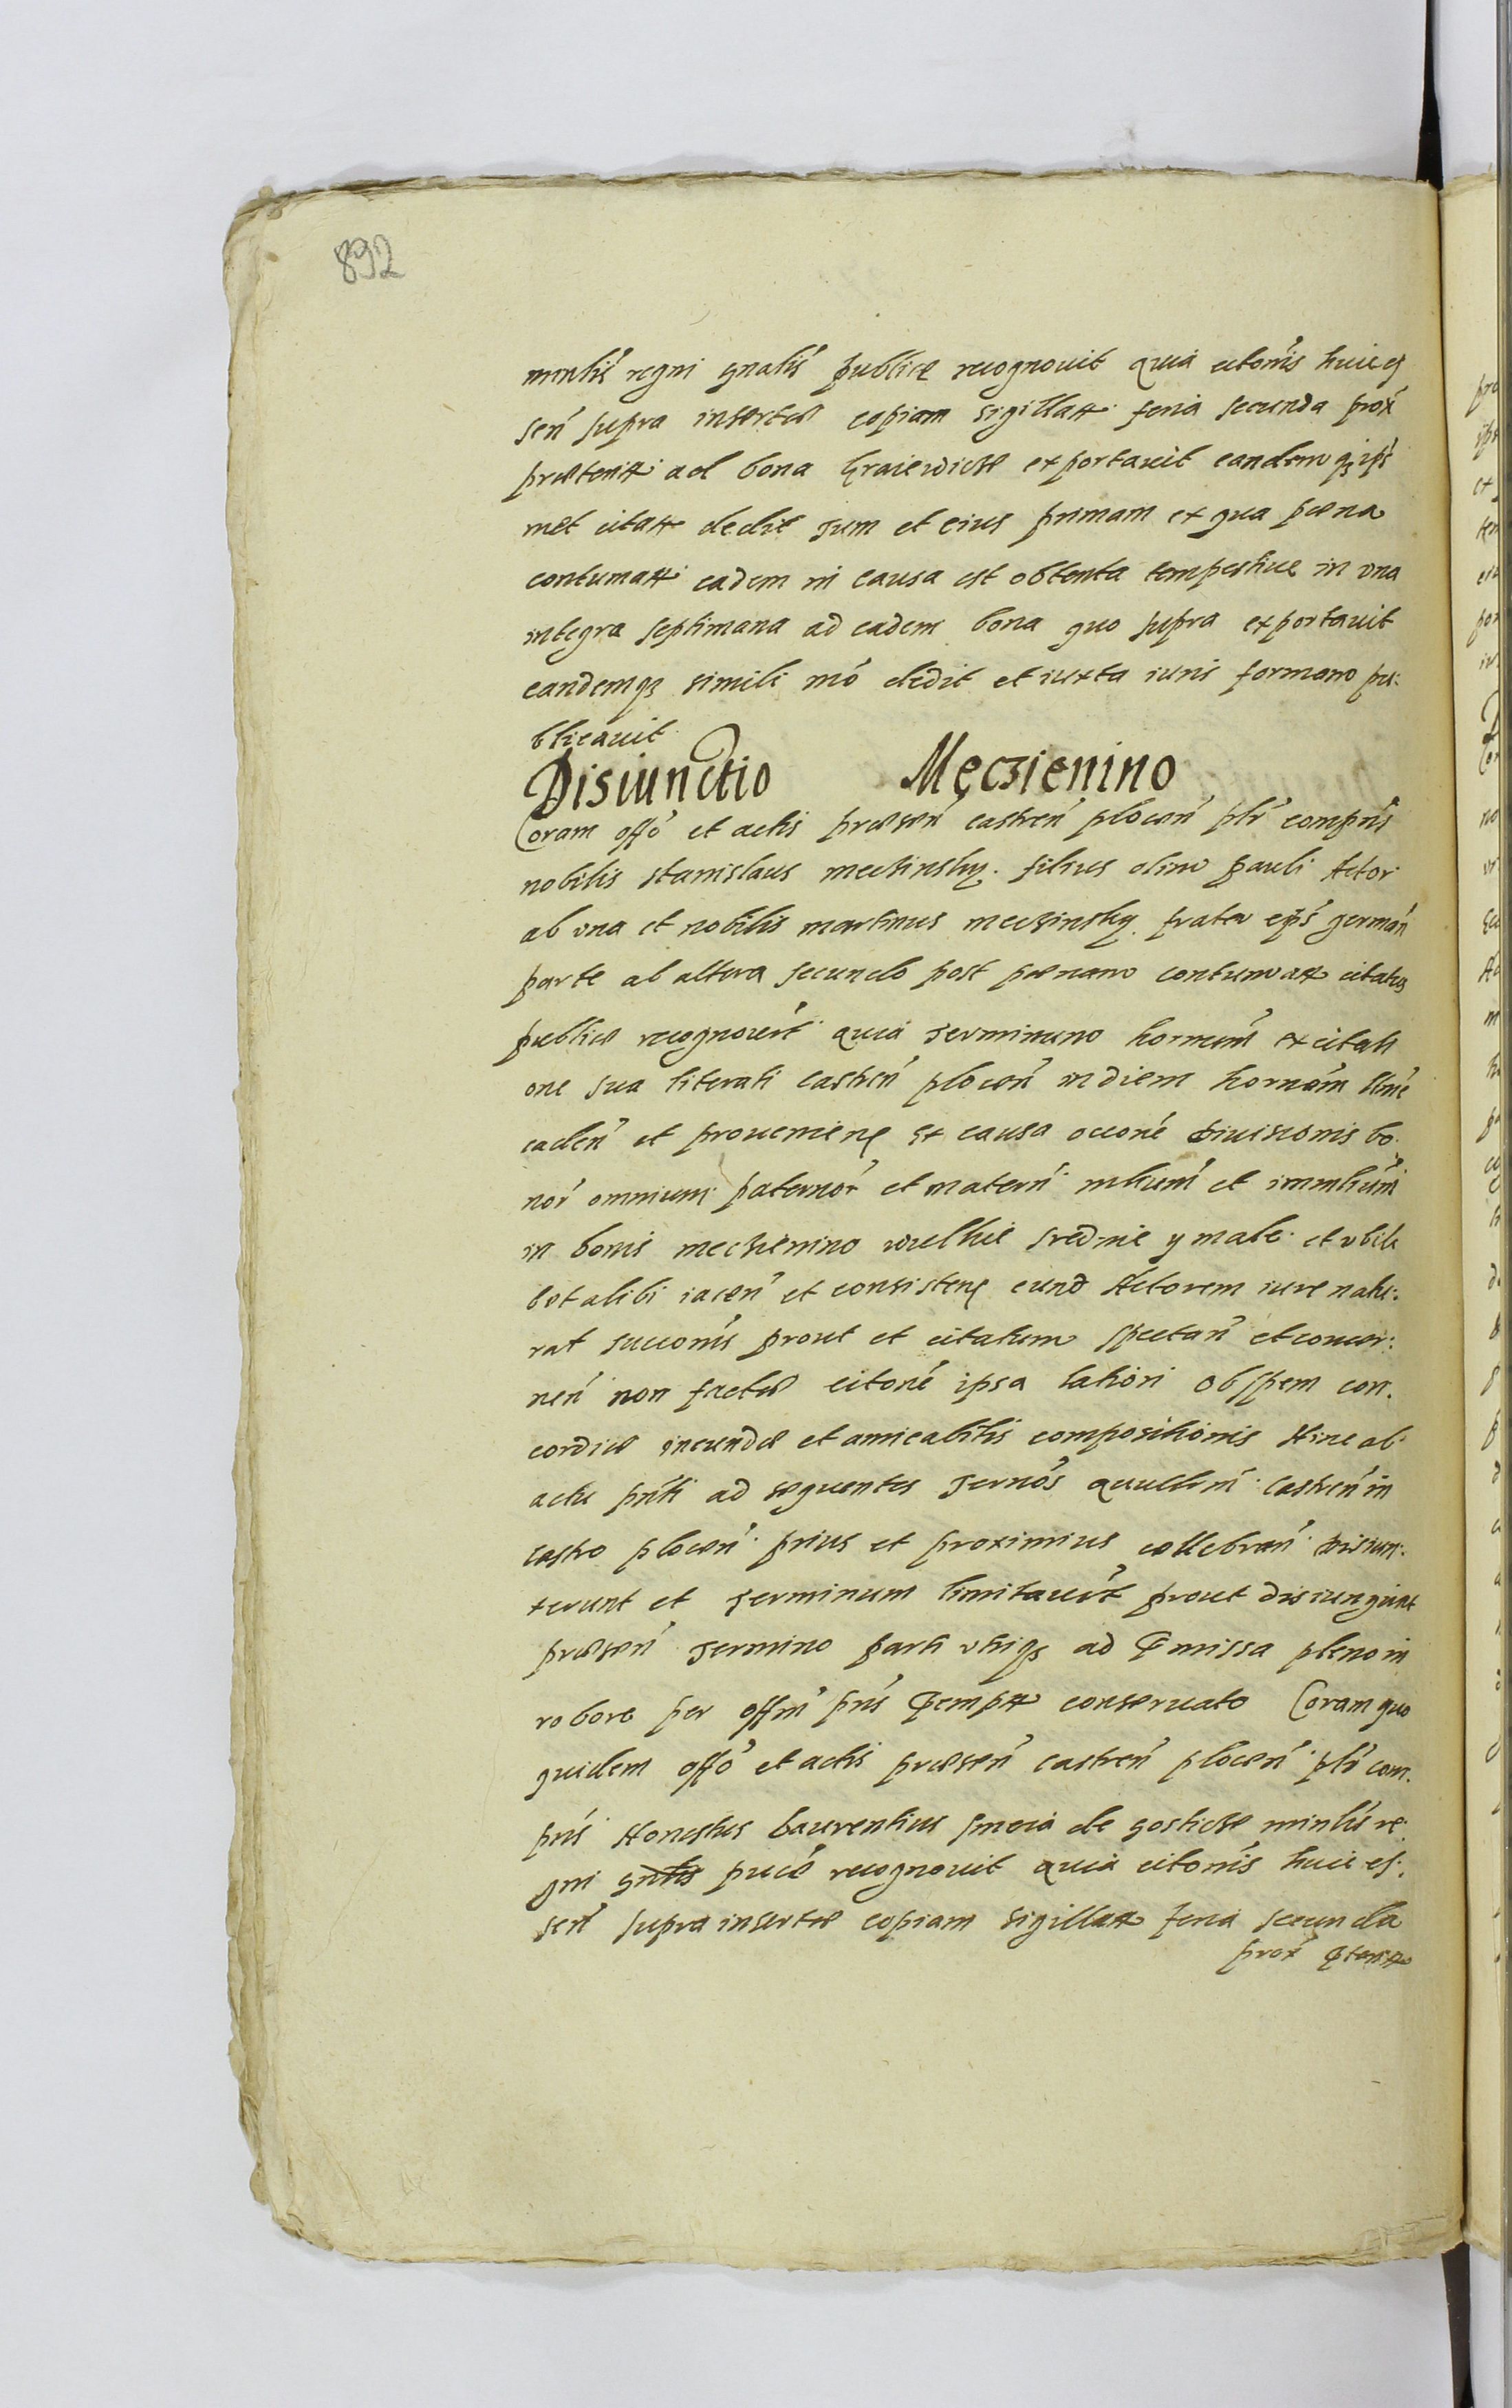 892
mnlis regni gnalis publice recognouit quia citonis huic es
sen supra insertæ copiam sigillatt. feria secunda prox
præteritt. ad bona Graiewicze exportauit eandemqз ips
met citatt dedit Tum et eius primam ex qua pœna
contumatt. eadem in causa est obtenta tempestiue in vna
integra septimana ad eadem bona quo supra exportauit
eandemqз simili mó dedit et iuxta iuris formam pu:
blicauit
Disiunctio Męczienino
Coram offó et actis præsen castren plocen plr compns
nobilis stanislaus meczinsky. filius olim pauli Actor
ab vna et nobilis martinus meczinsky frater eius german
parte ab altera secundo post pœnam contumatt citatus
publice recognouert quia Terminum hornum ex citati
one sua literali castren plocen in diem hornam
caden et prouenien ex causa diuisionis bo.
nor omnium paternor et matern mlium et immlium
in bonis meczienino wielkie srednie y male et vbili
bet alibi iacen et consisten eund Actorem iure natu:
ral succonis prout et citatum spectan et concer:
nen non factæ citone ipsa latiori ob spem con.
cordiæ ineundæ et amicabilis compositionis Hinc ab
actu pnti ad sequentes Termos castren in
castro plocen prius et proximius cellebran disiun:
xerunt et Terminum limitauert prout disiungunt
præsen Termino parti vtriqз ad pmissa pleno in
robore per offm pns conseruato Coram quo
quidem offó et actis præsen castren plocen plr com.
pns Honestus Laurentius de gosticze minlis re
gni gnlis puce recognouit quia citonis huic es:
sen supra insertæ copiam sigillatt feria secunda
prox pteritt